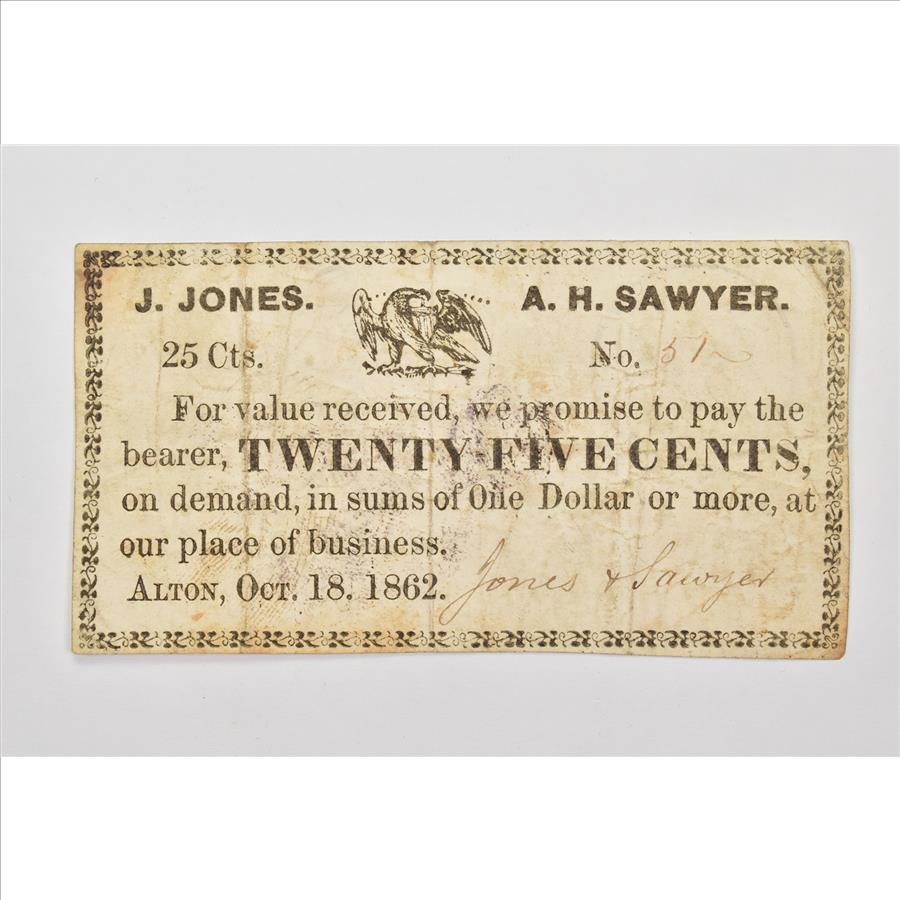 J. JONES. A. H. SAWYER.
25 Cts. No. 51
For value received, we promise to pay the
bearer, TWENTY-FIVE CENTS,
on demand, in sums of One Dollar or more, at
our place of business.
ALTON, OCT. 18. 1862. Jones & Sawyer